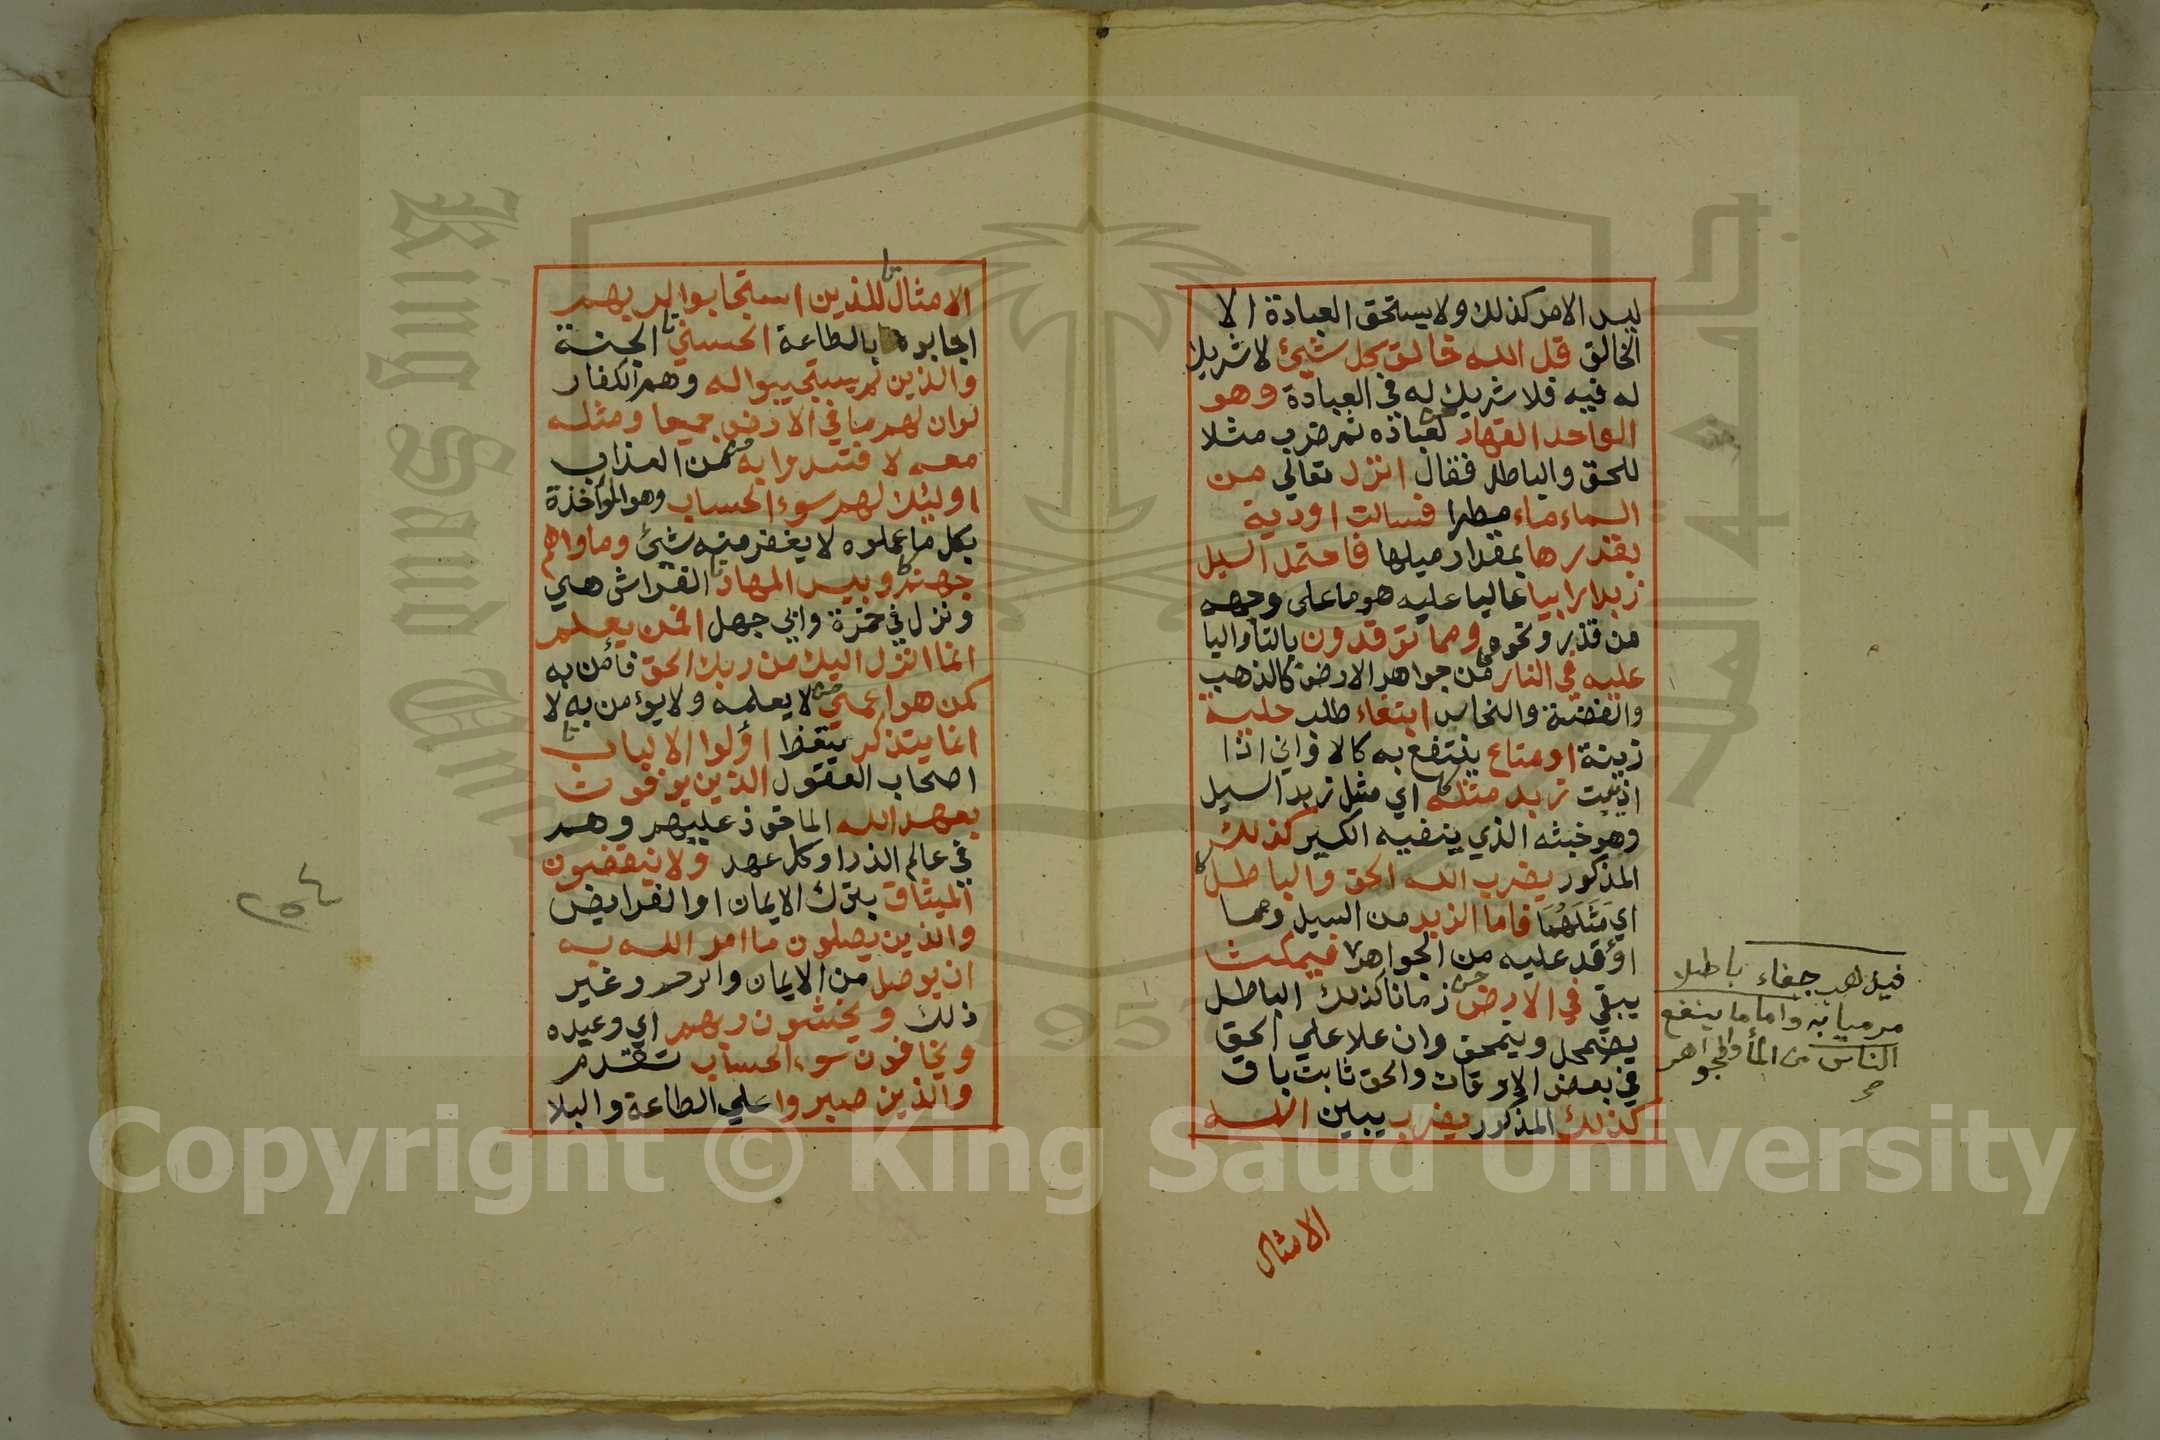 ليس الامر كذلك ولا يستحق العبادة الا
الخالق قل الله خالق كل شيئ لا شريك
له فيه فلا شريك له في العبادة وهو
الواحد القهار لعباده ثم ضرب مثلا
للحق والباطل فقال انزل تعالي من
السماء ماء مطرا فسالت اودية
بقدرها بمقدار ميلها فاحتمل السيل
زبدا رابيا عاليا عليه هو ما على وجهه
من قذر ونحوه ومما توقدون بالتا واليا
عليه في النار من جواهر الارض كالذهب
والفضة والنحاس ابتغاء طلب حلية
زينة او متاع ينتفع به كالاواني اذا
اذيبت زبد مثله اي مثل زبد السيل
وهو خبثه الذي ينفيه الكير كذلك
المذكور يضرب الله الحق والباطل
اي مَثَلَهُمَا فاما الزبد من السيل وما
اوقد عليه من الجواهر فيمكث
يبقي في الارض زمانا كذلك الباطل
يضمحل وينمحق وان علا علي الحق
في بعض الاوقات والحق ثابت باق
كذلك المذكور يضرب يبين الله
الامثال
فيذهب جفاء باطلا
مرميا به واما ما ينفع
الناس من الماء والجواهر
صح
الامثال للذين استجابوا لربهم
اجابوه بالطاعة الحسني الجنة
والذين لم يستجيبوا له وهم الكفار
لو ان لهم ما في الارض جميعا ومثله
معه لافتدوا به من العذاب
اوليك لهم سوء الحساب وهو المؤاخذة
بكل ما عملوه لا يغفر منه شيئ وماواهم
جهنم وبيس المهاد الفراش هي
ونزل في حمزة وابي جهل افمن يعلم
انما انزل اليك من ربك الحق فامن به
كمن هو اعمي لا يعلمه ولا يؤمن به لا
انما يتذكر يتعظ اولوا الالباب
اصحاب العقول الذين يوفون
بعهد الله الماخوذ عليهم وهم
في عالم الذر او كل عهد ولا ينقضون
الميثاق بترك الايمان او الفرايض
والذين يصلون ما امر الله به
ان يوصل من الايمان والرحم وغير
ذلك ويخشون ربهم اي وعيده
ويخافون سوء الحساب تقدم
والذين صبروا علي الطاعة والبلا
٢٥٤
King Saud University
1957
Copyright © King Saud University